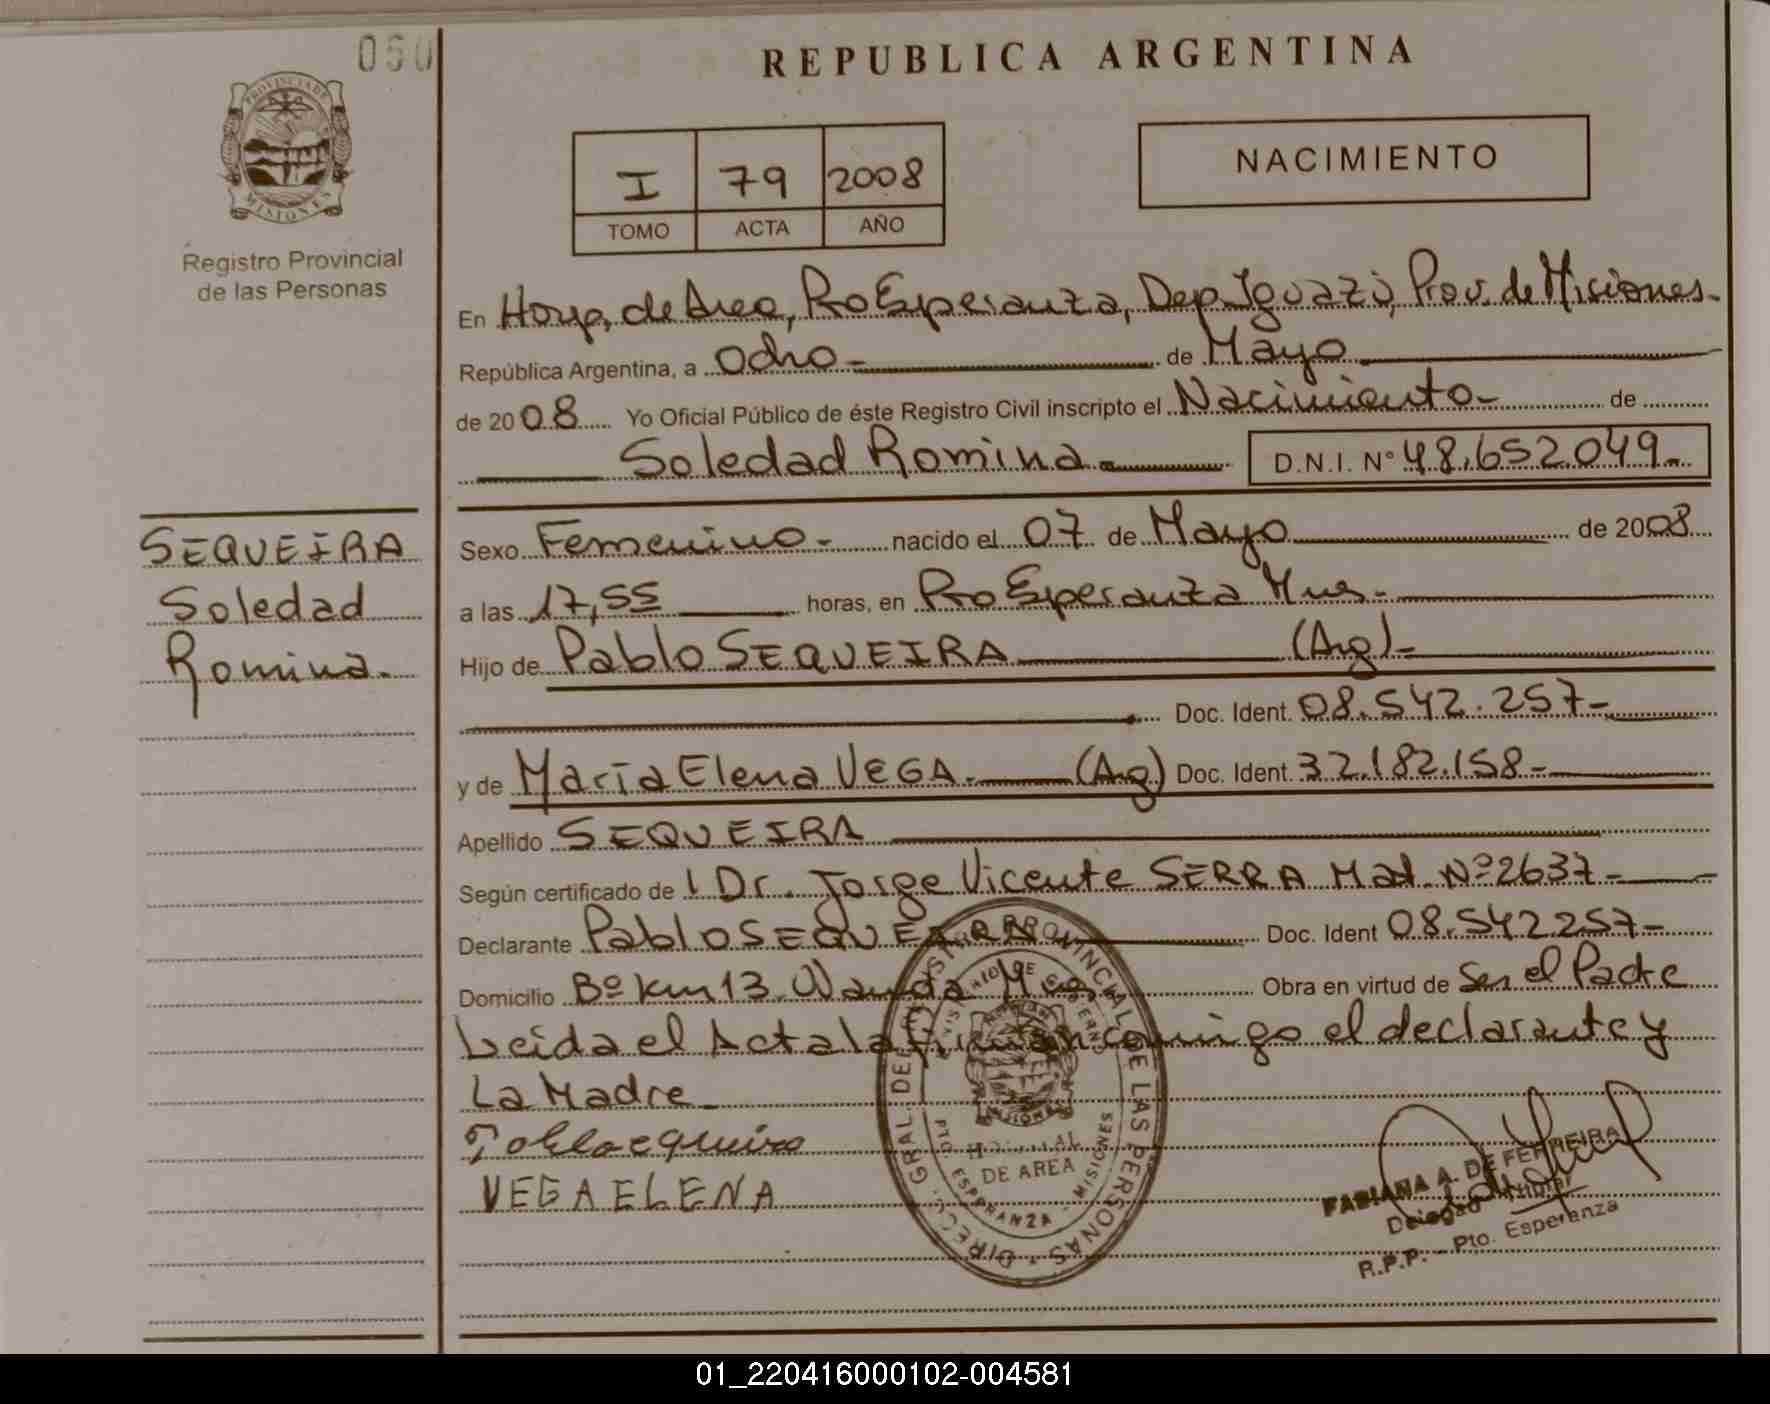 060
PROVINCIA DE
MISIONES
Registro Provincial
de las Personas
SEQUEIRA
Soledad
Romina.
REPUBLICA ARGENTINA
I 79 2008
TOMO ACTA AÑO
NACIMIENTO
En Hosp. de Area, Pto Esperanza, Dep. Iguazú, Prov. de Misiones.
República Argentina, a Ocho - de Mayo
de 2008 Yo Oficial Público de éste Registro Civil inscripto el Nacimiento - de
Soledad Romina - D.N.I. N° 48.652049-
Sexo Femenino - nacido el 07 de Mayo de 2008
a las 17,55 horas, en Pto Esperanza Mnes.
Hijo de Pablo SEQUEIRA (Arg)-
Doc. Ident. 08.542.257-
y de María Elena VEGA. (Arg) Doc. Ident. 32.182.158-
Apellido SEQUEIRA
Según certificado de l Dr. Jorge Vicente SERRA Mat. Nº 2637-
Declarante Pablo SEQUEIRA Doc. Ident 08.542257-
Domicilio Bº Km 13 Wanda Mnes Obra en virtud de Ser el Padre
Leida el Acta la firman conmigo el declarante y
La Madre
VEGA ELENA
DIRECC. GRAL. DEL REGISTRO PROVINCIAL DE LAS PERSONAS
MINISTERIO DE GOBIERNO
MISIONES
HOSPITAL
DE AREA
PTO. ESPERANZA - MISIONES
FABIANA A. DE FERREIRA
Delegad Titular
R.P.P. - Pto. Esperanza
01_220416000102-004581